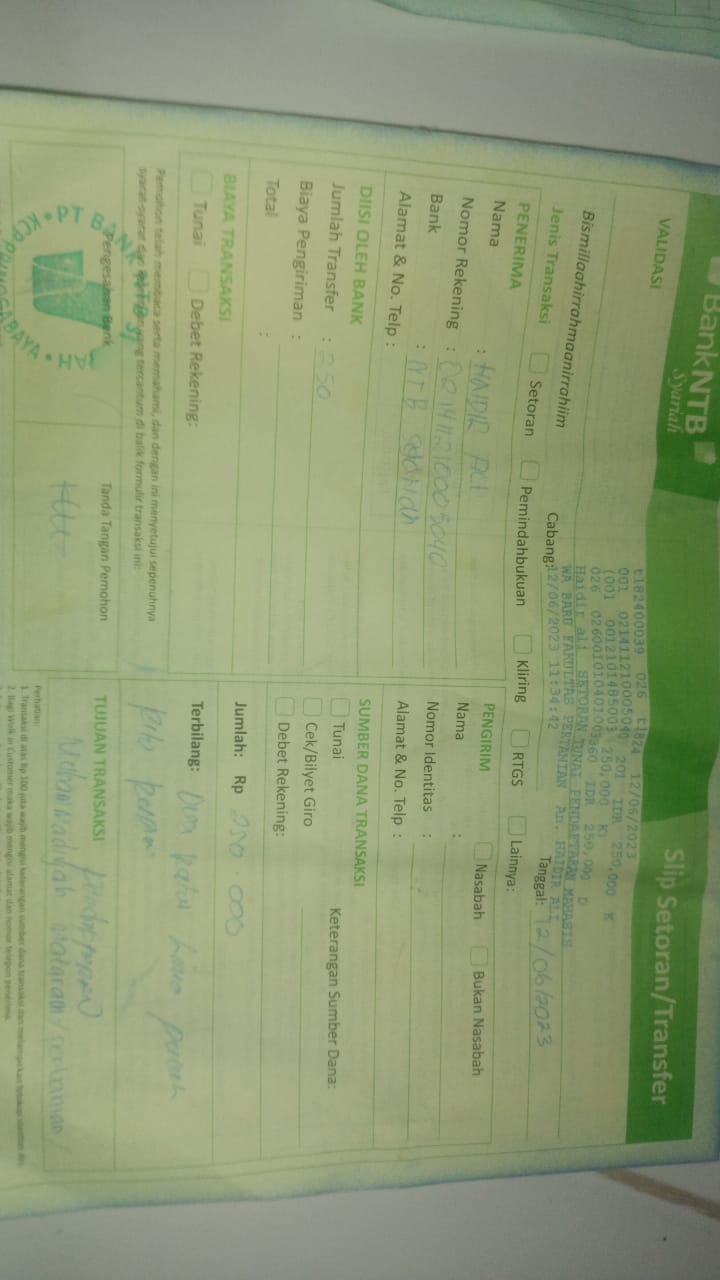 BankNTB
Syariah
Slip Setoran/Transfer
VALIDASI
t182400039 026 t1824 12/06/2023
001 021411210005040 201 IDR 250,000 K
(001 0012101485003 250,000 K)
026 0260010104010 360 IDR 250,000 D
Haidir ali SETORAN TUNAI PENDAFTARAN MAHASIS
WA BARU FAKULTAS PERTANIAN An. HAIDIR ALI
12/06/2023 11:34:42
Bismillaahirrahmaanirrahiim
Cabang:
Tanggal: 12/06/2023
Jenis Transaksi Setoran Pemindahbukuan Kliring RTGS Lainnya:
PENERIMA
Nama : HAIDIR ALI
Nomor Rekening :
Bank : NTB
Alamat & No. Telp :
PENGIRIM Nasabah Bukan Nasabah
Nama :
Nomor Identitas :
Alamat & No. Telp :
DIISI OLEH BANK
Jumlah Transfer : 250
Biaya Pengiriman :
Total :
SUMBER DANA TRANSAKSI
Tunai Keterangan Sumber Dana:
Cek/Bilyet Giro
Debet Rekening:
BIAYA TRANSAKSI
Tunai Debet Rekening:
Jumlah: Rp 250.000
Terbilang: Dua ratus Lima puluh
Ribu
Pemohon telah membaca serta memahami, dan dengan ini menyetujui sepenuhnya
syarat-syarat dan yang tercantum di balik formulir transaksi ini:
Pengesahan Bank
Tanda Tangan Pemohon
PT BANK NTB
TUJUAN TRANSAKSI
Mataram
Perhatian:
1. Transaksi di atas Rp 100 juta wajib mengisi keterangan sumber dana transaksi dan melampirkan fotokopi identitas
2. Bagi Walk in Customer maka wajib mengisi alamat dan nomor telepon penerima.